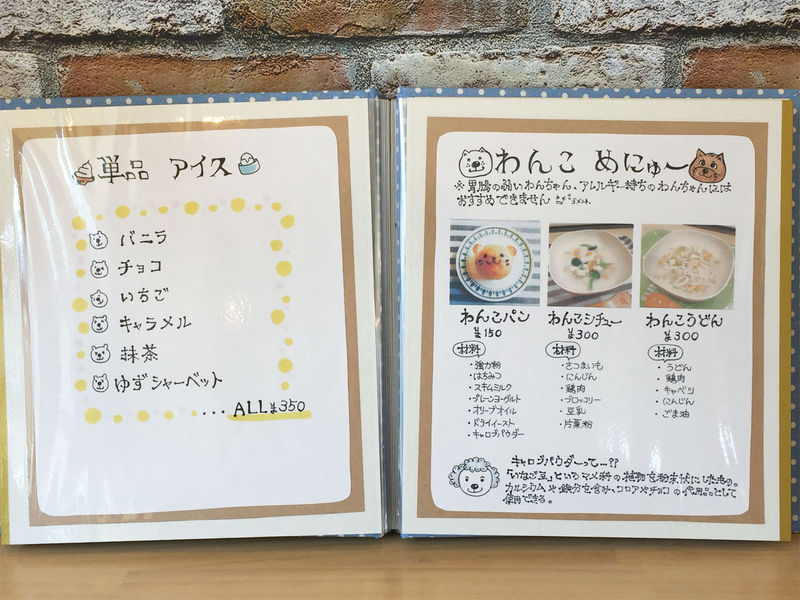 単品 アイス
バニラ
チョコ
いちご
キャラメル
抹茶
ゆずシャーベット
... ALL ¥350
わんこ めにゅー
※ 胃腸の弱いわんちゃん、アレルギー持ちのわんちゃんには
おすすめできません
わんこパン
¥150
材料
・強力粉
・はちみつ
・スキムミルク
・プレーンヨーグルト
・オリーブオイル
・ドライイースト
・キャロブパウダー
わんこシチュー
¥300
材料
・さつまいも
・にんじん
・鶏肉
・ブロッコリー
・豆乳
・片栗粉
わんこうどん
¥300
材料
・うどん
・鶏肉
・キャベツ
・にんじん
・ごま油
キャロブパウダーって…??
「いなご豆」というマメ科の植物を粉末状にしたもの。
カルシウムや鉄分を含み、ココアやチョコの代用品として
使用できる。